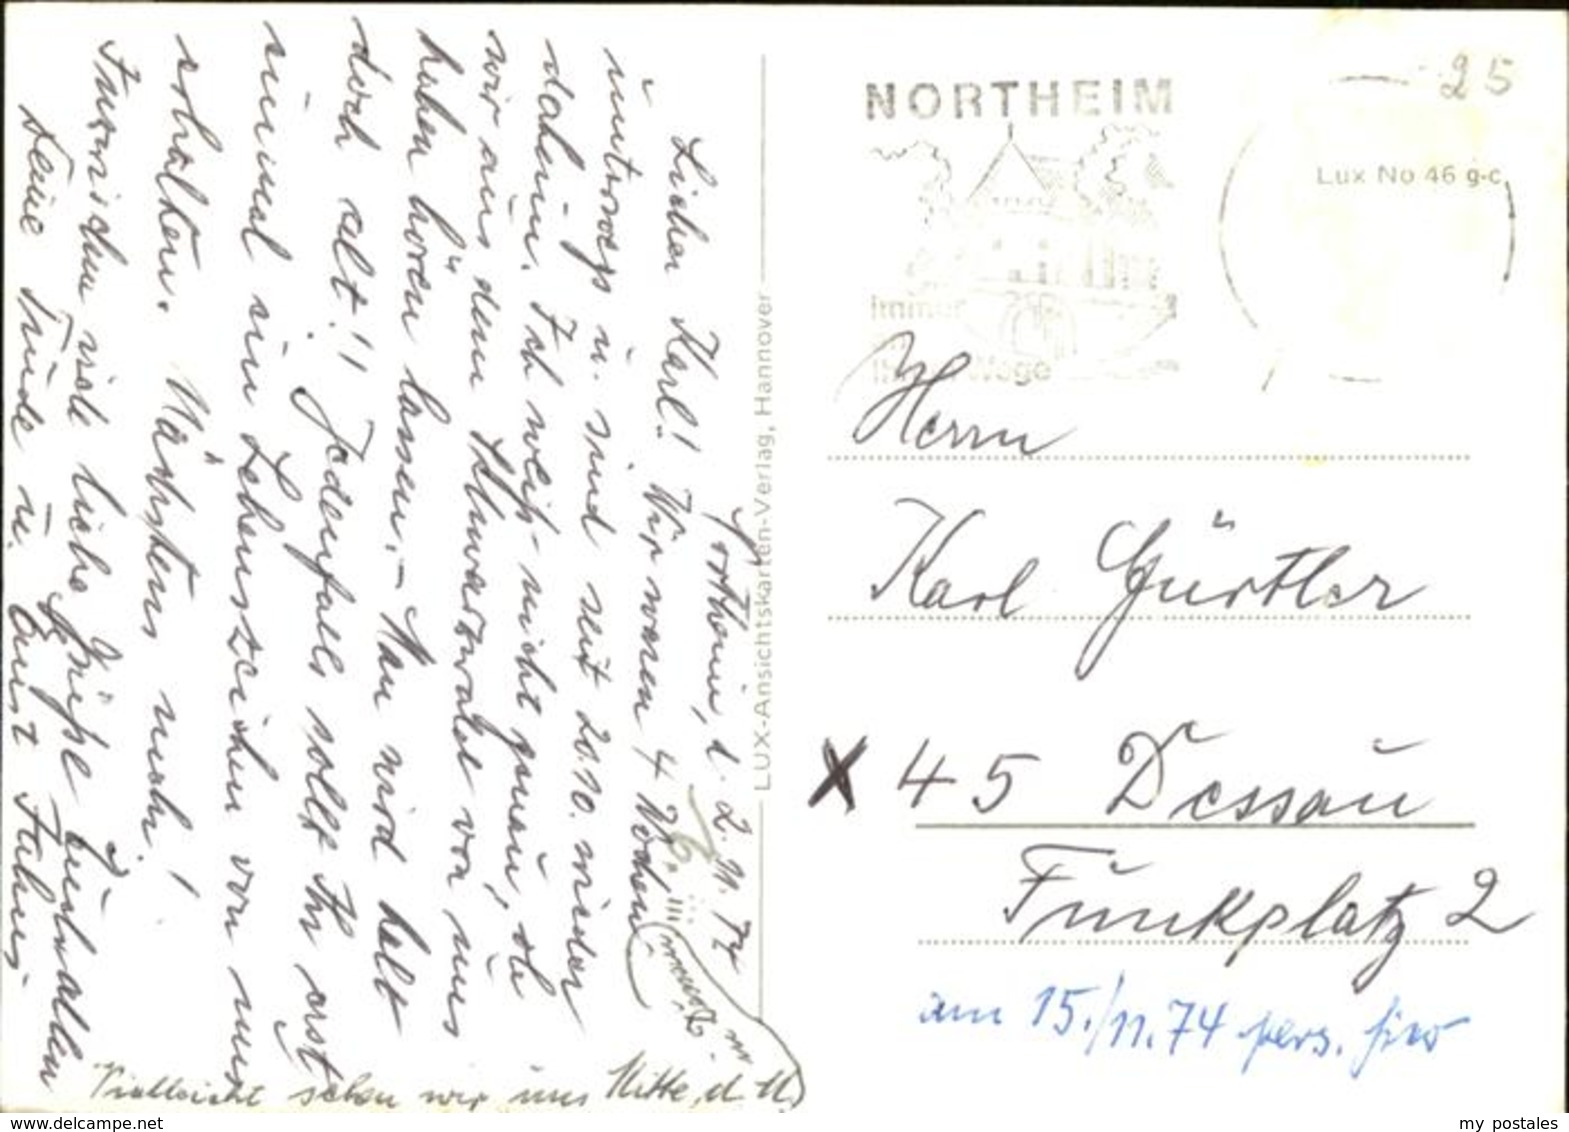 Northeim, d. 2.11.74
Lieber Karl! Wir waren 4 Wochen
unterwegs u. sind seit 20.10. wieder
daheim. Ich weiß nicht genau, ob
wir aus dem Schwarzwald von uns
haben hören lassen. – Man wird halt
doch alt!! Jedenfalls sollt Ihr erst
einmal ein Lebenszeichen von uns
erhalten. Nächstens mehr!
Inzwischen viele liebe Grüße Euch allen
Deine Trude u. Ernst
Vielleicht sehen wir uns Mitte d. M.
LUX-Ansichtskarten-Verlag, Hannover
NORTHEIM
Immer
Wege
25
Lux No 46 g-c
Herrn
Karl Gürtler
X 45 Dessau
Funkplatz 2
am 15./11.74 pers.
delcampe.net
my_postales